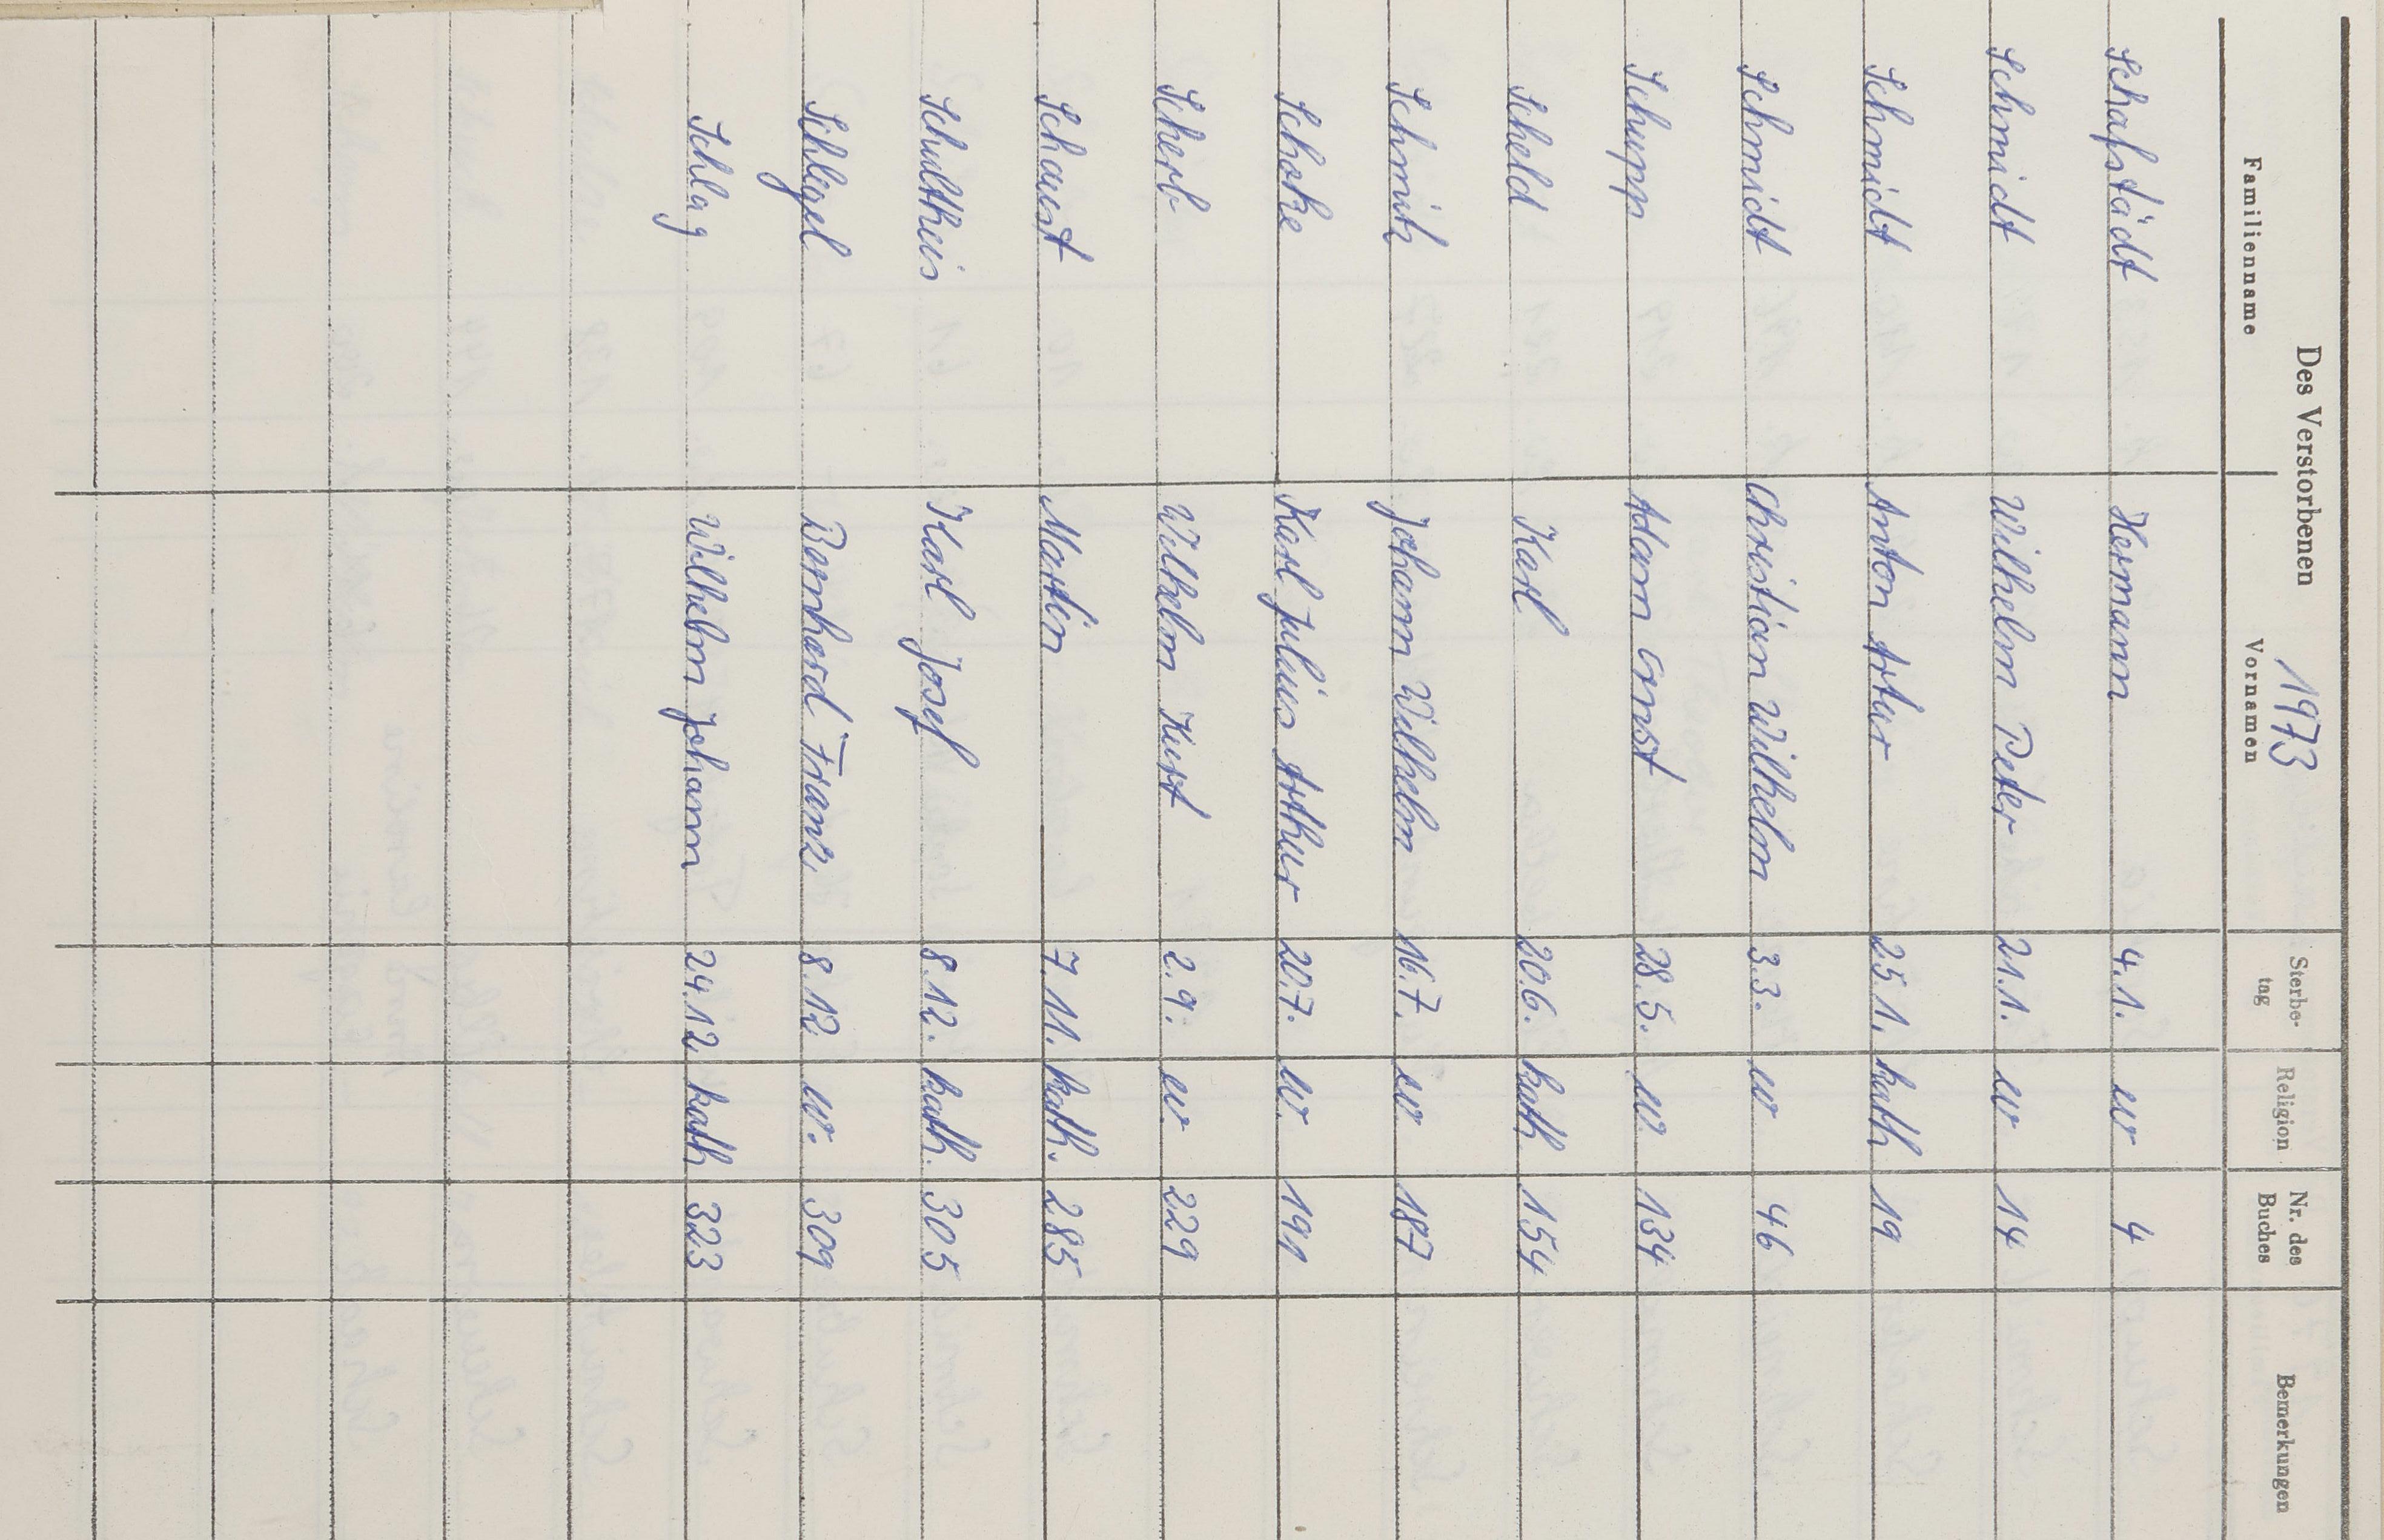 Des Verstorbenen 1973
Familienname Vornamen Sterbe- tag Religion Nr. des Buches Bemerkungen
Schafstädt Hermann 4.1. ev 4
Schmidt Wilhelm Peter 21.1. ev 14
Schmidt Anton Artur 25.1. kath 19
Schmidt Christian Wilhelm 3.3. ev 46
Schupp Adam Ernst 28.5. ev. 134
Scheld Karl 20.6. kath 154
Schmitz Johann Wilhelm 16.7. ev 187
Schoke Karl Julius Arthur 20.7. ev. 191
Scherb Wilhelm Kurt 2.9. ev 229
Schaust Martin 7.11. kath. 285
Schultheis Karl Josef 8.12. kath. 305
Schlegel Bernhard Franz 8.12. ev. 309
Schlag Wilhelm Johann 24.12. kath 323